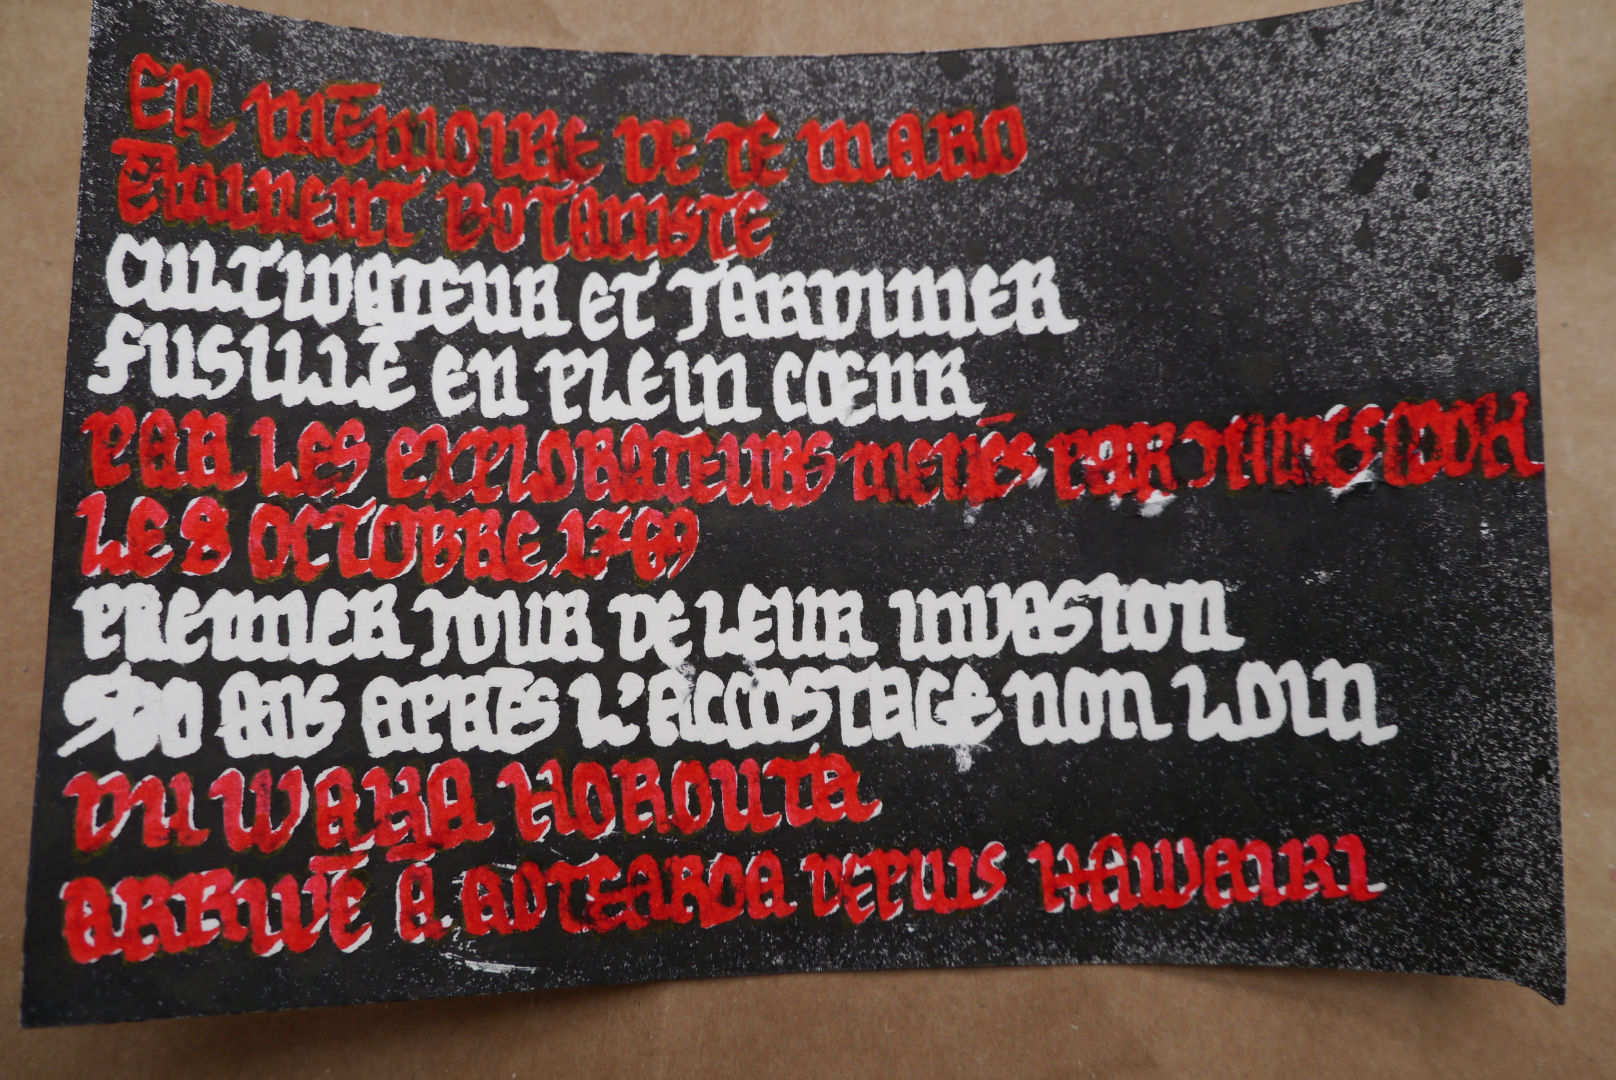 EN MÉMOIRE DE TE MARO
ÉMINENT BOTANISTE
CULTIVATEUR ET JARDINIER
FUSILLÉ EN PLEIN CŒUR
PAR LES EXPLORATEURS MENÉS PAR JAMES COOK
LE 8 OCTOBRE 1769
PREMIER JOUR DE LEUR INVASION
500 ANS APRÈS L'ACCOSTAGE NON LOIN
DU WAKA HOROUTA
ARRIVÉ À AOTEAROA DEPUIS HAWAIKI